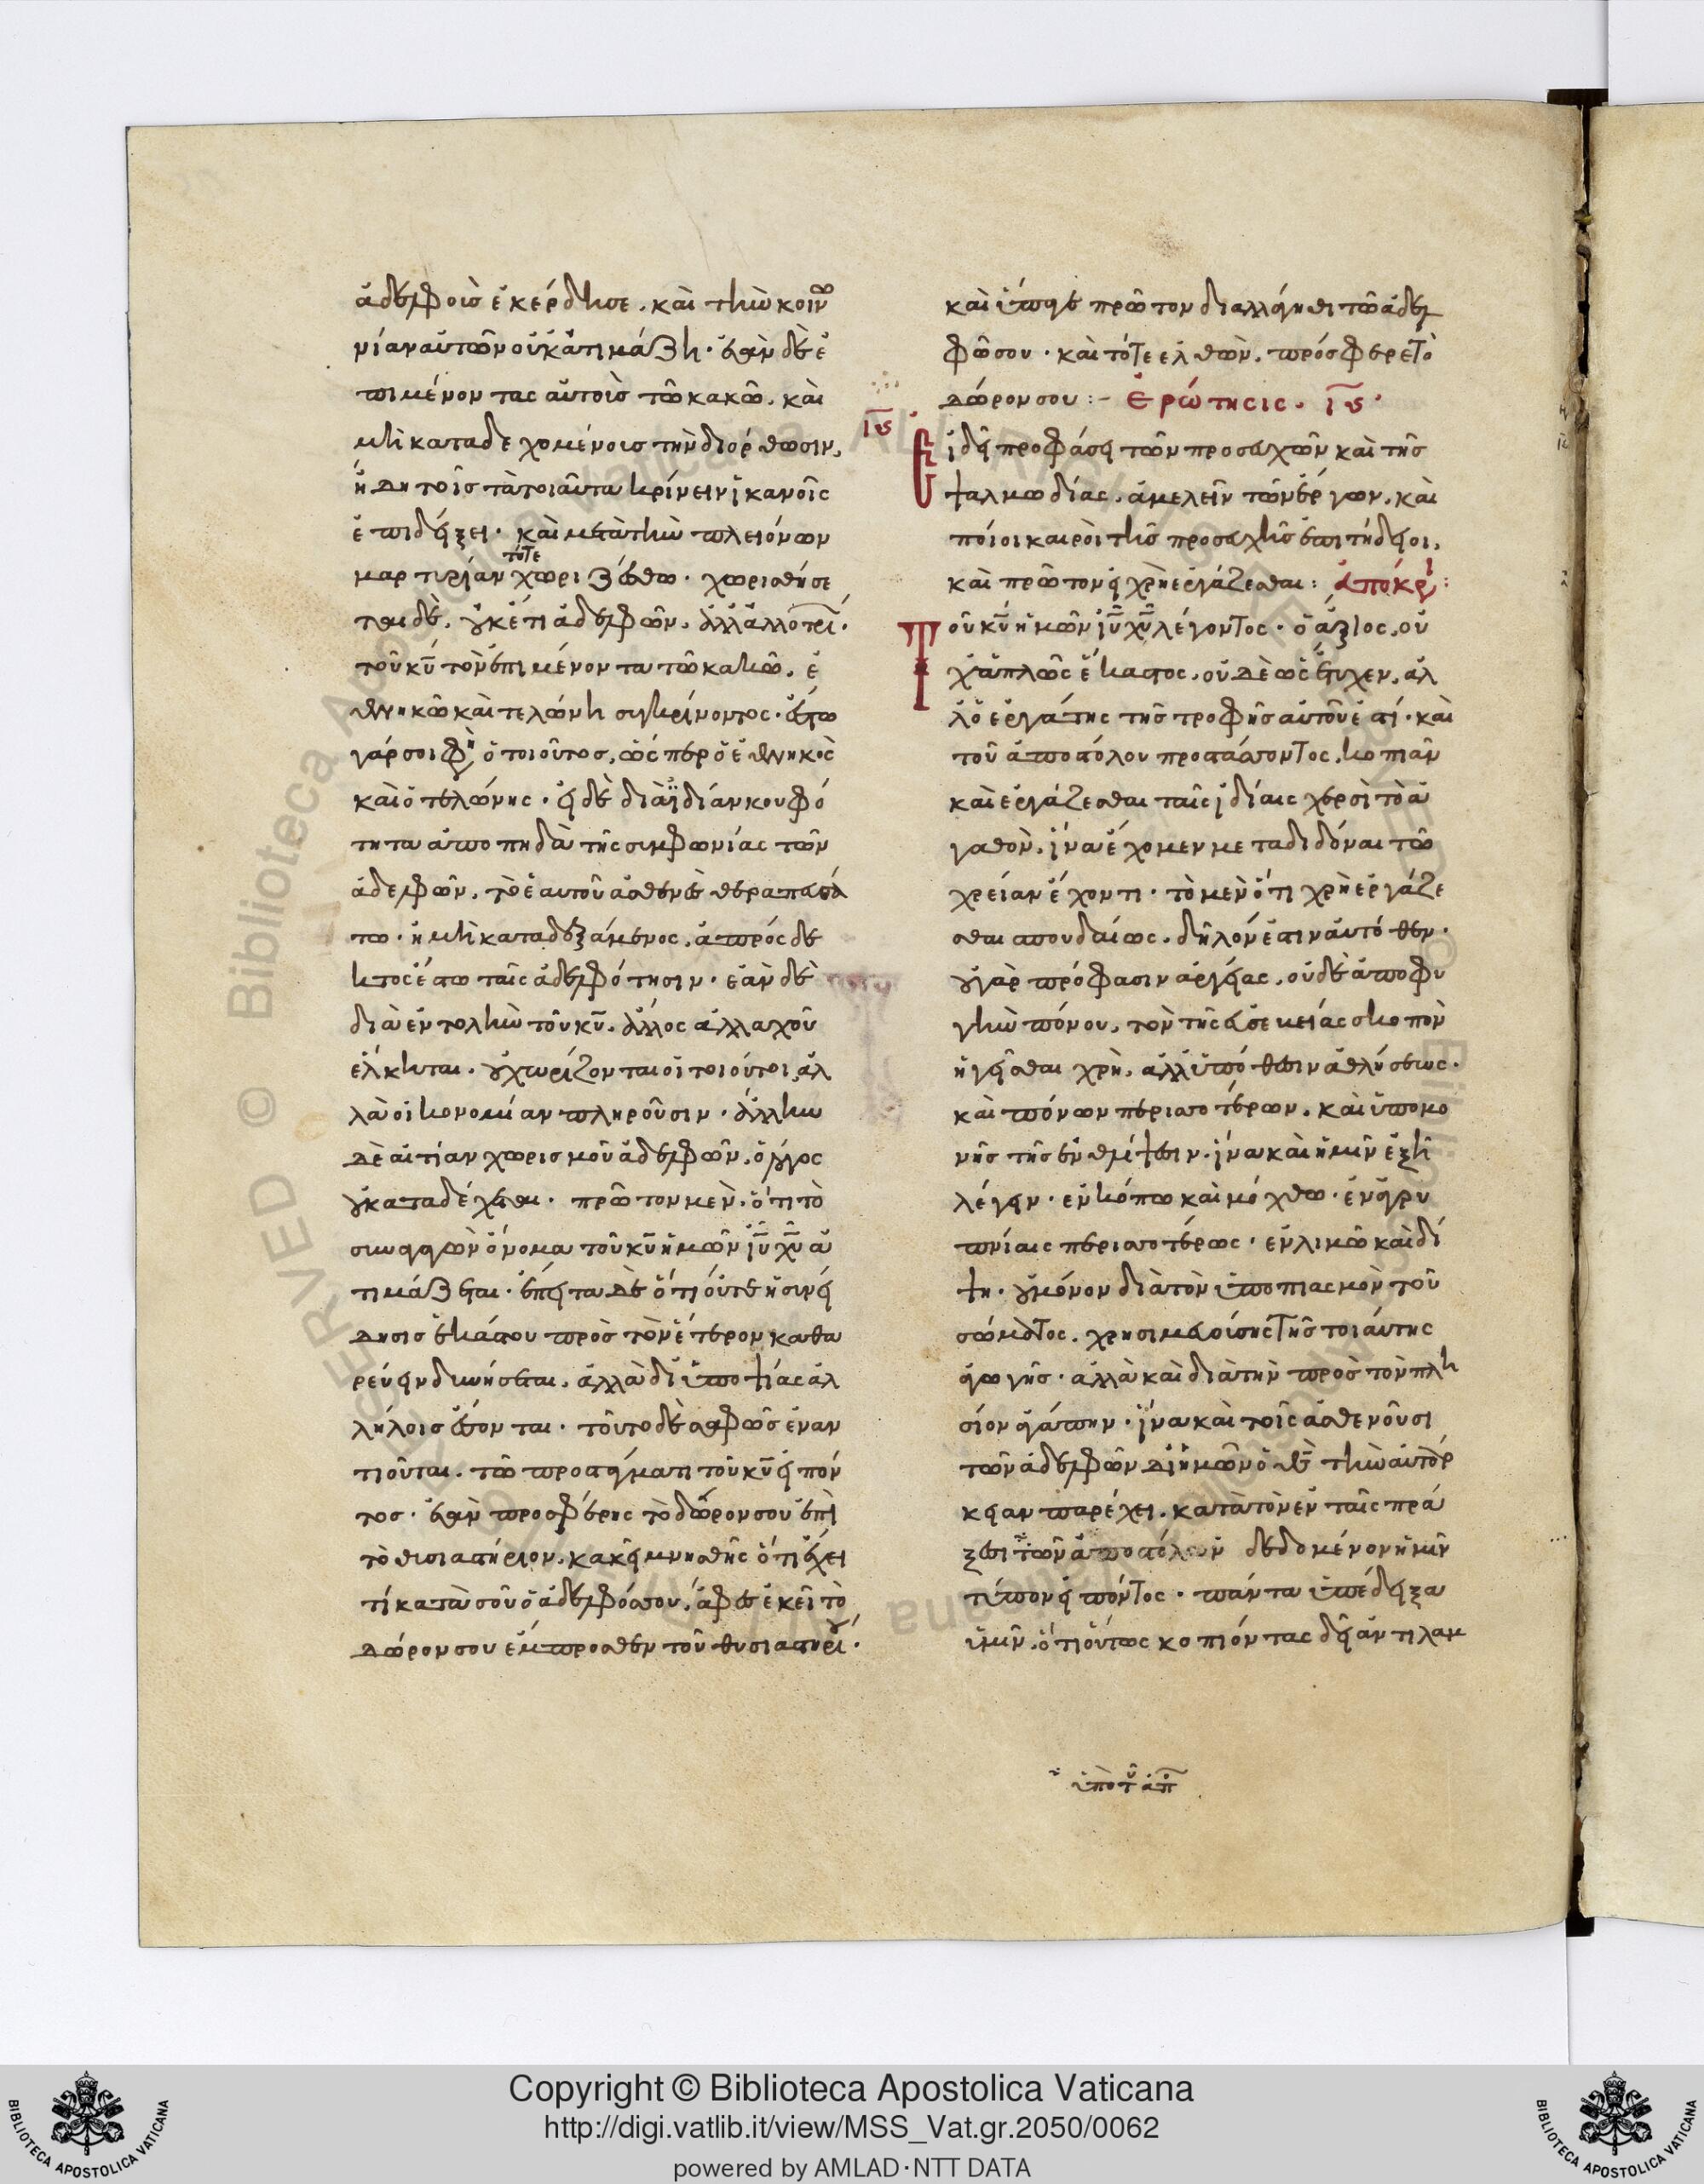 ἀδελφοὺς ἐκέρδησε. καὶ τὴν κοινω
νίαν αὐτῶν οὐκ ἀτιμάζει. ἐὰν δὲ ἐ
πιμένοντας αὐτοὺς τῶ κακῶ. καὶ
μὴ καταδεχομένους τὴν διόρθωσιν,
ἤδη τοῖς τὰ τοιαῦτα κρίνειν ἱκανοῖς
ἐπιδείξει. καὶ μετὰ τὴν πλειόνων
τότε
μαρτυρίαν χωριζέσθω. χωρισθήσε
ται δὲ, οὐκέτι ἀδελφῶν. ἀλλ' ἀλλοτρί.
τοῦ κυ τὸν ἐπιμένοντα τῶ κακῶ. ἐ
θνηκῶ καὶ τελώνη συγκρίνοντος. ἔστω
γάρ σοι φη, ὁ τοιοῦτος, ὥσπερ ὁ ἐθνηκὸς
καὶ ὁ τελώνης. εἰ δὲ διὰ ἰδίαν κουφό
τητα ἀποπηδᾶ τῆς συμφωνίας τῶν
ἀδελφῶν. τὸ ἑαυτοῦ ἀσθενὲς θεραπευσά
τω. ἢ μὴ καταδεξάμενος, ἀπρόσδε
κτος ἔστω ταῖς ἀδελφότησιν. ἐὰν δὲ
διὰ ἐντολὴν τοῦ κυ. ἄλλος ἀλλαχοῦ
ἕλκηται. οὐ χωρίζονται οἱ τοιοῦτοι, ἀλ
λὰ οἰκονομίαν πληροῦσιν. ἄλλην
δὲ αἰτίαν χωρισμοῦ ἀδελφῶν, ὁ λόγος
οὐ καταδέχεται. πρῶτον μὲν, ὅτι τὸ
συναγαγὼν ὄνομα τοῦ κυ ἡμῶν ιυ χυ ἀ
τιμάζεται. ἔπειτα δὲ ὅτι οὔτε ἡ συνεί
δησις ἑκάστου πρὸς τὸν ἕτερον καθα
ρεύειν δυνήσεται. ἀλλὰ δι' ὑποψίας ἀλ
λήλοις ἔσονται. τοῦτο δὲ σαφῶς ἐναν
τιοῦται. τῶ προστάγματι τοῦ κυ εἰπόν
τος. ἐὰν προσφέρης τὸ δῶρον σου ἐπὶ
τὸ θυσιαστήριον. κἀκεῖ μνησθῆς ὅτι ἔχει
τί κατὰ σοῦ ὁ ἀδελφός σου, ἄφες ἐκεῖ τὸ
δῶρον σου ἔμπροσθεν τοῦ θυσιαστηρί.
καὶ ὕπαγε πρῶτον διαλλάγηθι τῶ ἀδελ
φῶ σου. καὶ τότε ἐλθὼν. πρόσφερε τὸ
δῶρον σου :- ἐρώτησις. ις.
ις
Εἰ δεῖ προφάσει τῶν προσευχῶν καὶ τῆς
ψαλμωδίας. ἀμελεῖν τῶν ἔργων. καὶ
ποίοι καιροὶ τῆς προσευχῆς ἐπιτήδειοι.
καὶ πρῶτον εἰ χρὴ ἐργάζεσθαι: ἀπόκρι:
Τοῦ κυ ἡμῶν ιυ χυ λέγοντος. ὅ ἄξιος, οὐ
χ' ἁπλῶς ἕκαστος, οὐδὲ ὡς ἔτυχεν, ἀλ
λ' ὁ ἐργάτης τῆς τροφῆς αὐτοῦ ἐστί. καὶ
τοῦ ἀποστόλου προστάσσοντος. κοπιᾶν
καὶ ἐργάζεσθαι ταῖς ἰδίαις χερσὶ τὸ ἀ
γαθὸν. ἵνα ἔχομεν μεταδιδόναι τῶ
χρείαν ἔχοντι. τὸ μὲν ὅτι χρὴ ἐργάζε
σθαι σπουδαίως. δῆλόν ἐστιν αὐτόθεν.
οὐ γὰρ πρόφασιν ἀργείας. οὐδὲ ἀποφυ
γὴν πόνου, τὸν τῆς εὐσεβείας σκοπὸν
ἡγεῖσθαι χρὴ. ἀλλ' ὑπόθεσιν ἀθλήσεως.
καὶ πόνων περισσοτέρων. καὶ ὑπομο
νῆς τῆς ἐν θλίψεσιν. ἵνα καὶ ἡμῖν ἐξῆ
λέγειν. ἐν κόπω καὶ μόχθω. ἐν ἀγρυ
πνίαις περισσοτέρως. ἐν λιμῶ καὶ δί
ψη. οὐ μόνον διὰ τὸν ὑποπιασμὸν τοῦ
σώματος. χρησιμευούσης τῆς τοιαύτης
ἀγωγῆς. ἀλλὰ καὶ διὰ τὴν πρὸς τὸν πλη
σίον ἀγάπην. ἵνα καὶ τοῖς ἀσθενοῦσι
τῶν ἀδελφῶν δι' ἡμῶν ὁ θς τὴν αὐτάρ
κειαν παρέχει. κατὰ τὸν ἐν ταῖς πρά
ξεσι τῶν ἀποστόλων δεδομένον ἡμῖν
τύπον εἰπόντος. πάντα ὑπέδειξα
ὑμῖν. ὅτι οὕτως κοπιόντας δεῖ ἀντιλαμ
ὑπὸ τοῦ ἀπ
Copyright © Biblioteca Apostolica Vaticana
http://digi.vatlib.it/view/MSS_Vat.gr.2050/0062
powered by AMLAD·NTT DATA